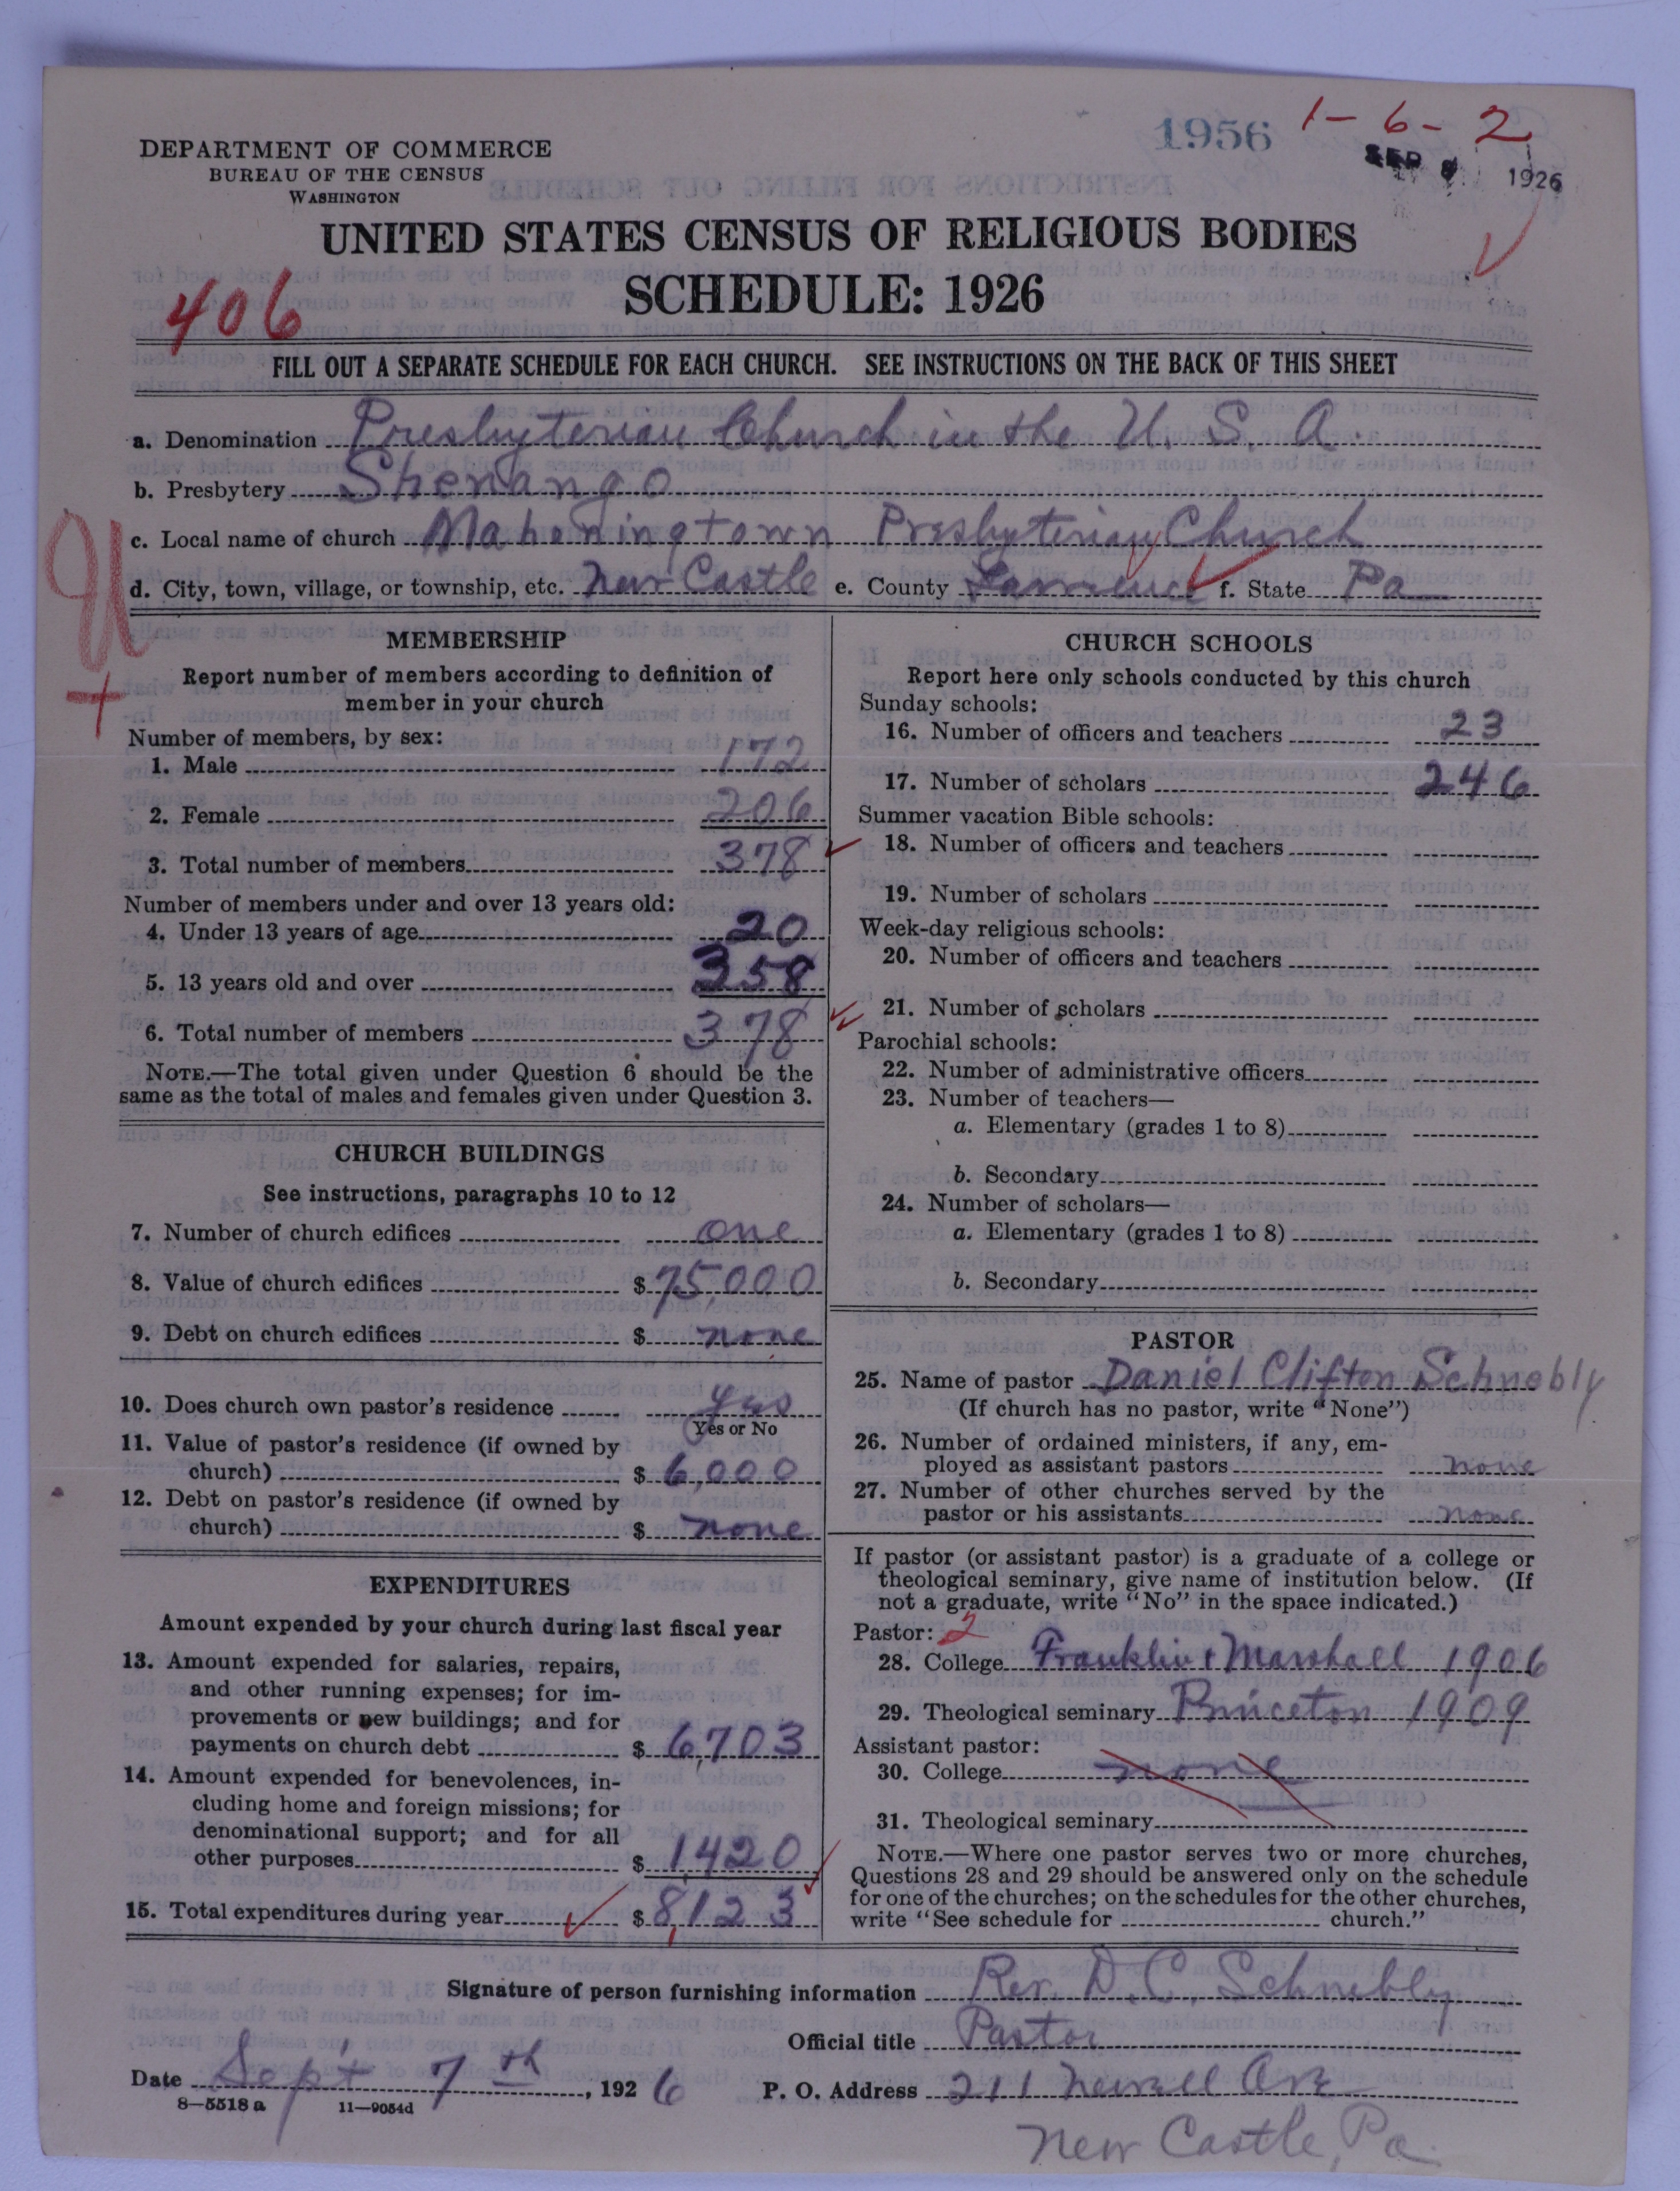 1956 1-6-2
SEP 1926
DEPARTMENT OF COMMERCE
BUREAU OF THE CENSUS
WASHINGTON
UNITED STATES CENSUS OF RELIGIOUS BODIES
SCHEDULE: 1926
406
FILL OUT A SEPARATE SCHEDULE FOR EACH CHURCH. SEE INSTRUCTIONS ON THE BACK OF THIS SHEET
a. Denomination Presbyterian Church in the U. S. A.
b. Presbytery Shenango
c. Local name of church Mahoningtown Presbyterian Church
d. City, town, village, or township, etc. New Castle e. County Lawrence f. State Pa
U
+
MEMBERSHIP
Report number of members according to definition of
member in your church
Number of members, by sex:
1. Male 172
2. Female 206
3. Total number of members 378
Number of members under and over 13 years old:
4. Under 13 years of age 20
5. 13 years old and over 358
6. Total number of members 378
NOTE.—The total given under Question 6 should be the
same as the total of males and females given under Question 3.
CHURCH BUILDINGS
See instructions, paragraphs 10 to 12
7. Number of church edifices one
8. Value of church edifices $75,000
9. Debt on church edifices $ none
10. Does church own pastor's residence yes
Yes or No
11. Value of pastor's residence (if owned by
church) $ 6,000
12. Debt on pastor's residence (if owned by
church) $ none
EXPENDITURES
Amount expended by your church during last fiscal year
13. Amount expended for salaries, repairs,
and other running expenses; for im-
provements or new buildings; and for
payments on church debt $ 6,703
14. Amount expended for benevolences, in-
cluding home and foreign missions; for
denominational support; and for all
other purposes $ 1,420
15. Total expenditures during year $ 8,123
CHURCH SCHOOLS
Report here only schools conducted by this church
Sunday schools:
16. Number of officers and teachers 23
17. Number of scholars 246
Summer vacation Bible schools:
18. Number of officers and teachers
19. Number of scholars
Week-day religious schools:
20. Number of officers and teachers
21. Number of scholars
Parochial schools:
22. Number of administrative officers
23. Number of teachers—
a. Elementary (grades 1 to 8)
b. Secondary
24. Number of scholars—
a. Elementary (grades 1 to 8)
b. Secondary
PASTOR
25. Name of pastor Daniel Clifton Schnebly
(If church has no pastor, write "None")
26. Number of ordained ministers, if any, em-
ployed as assistant pastors none
27. Number of other churches served by the
pastor or his assistants none
If pastor (or assistant pastor) is a graduate of a college or
theological seminary, give name of institution below. (If
not a graduate, write "No" in the space indicated.)
Pastor: 2
28. College Franklin & Marshall 1906
29. Theological seminary Princeton 1909
Assistant pastor:
30. College none
31. Theological seminary
NOTE.—Where one pastor serves two or more churches,
Questions 28 and 29 should be answered only on the schedule
for one of the churches; on the schedules for the other churches,
write "See schedule for church."
Signature of person furnishing information Rev. D. C. Schnebly
Official title Pastor
Date Sep't 7th, 1926 P. O. Address 211 Newell Ave
8—5518a 11—9054d
New Castle, Pa.